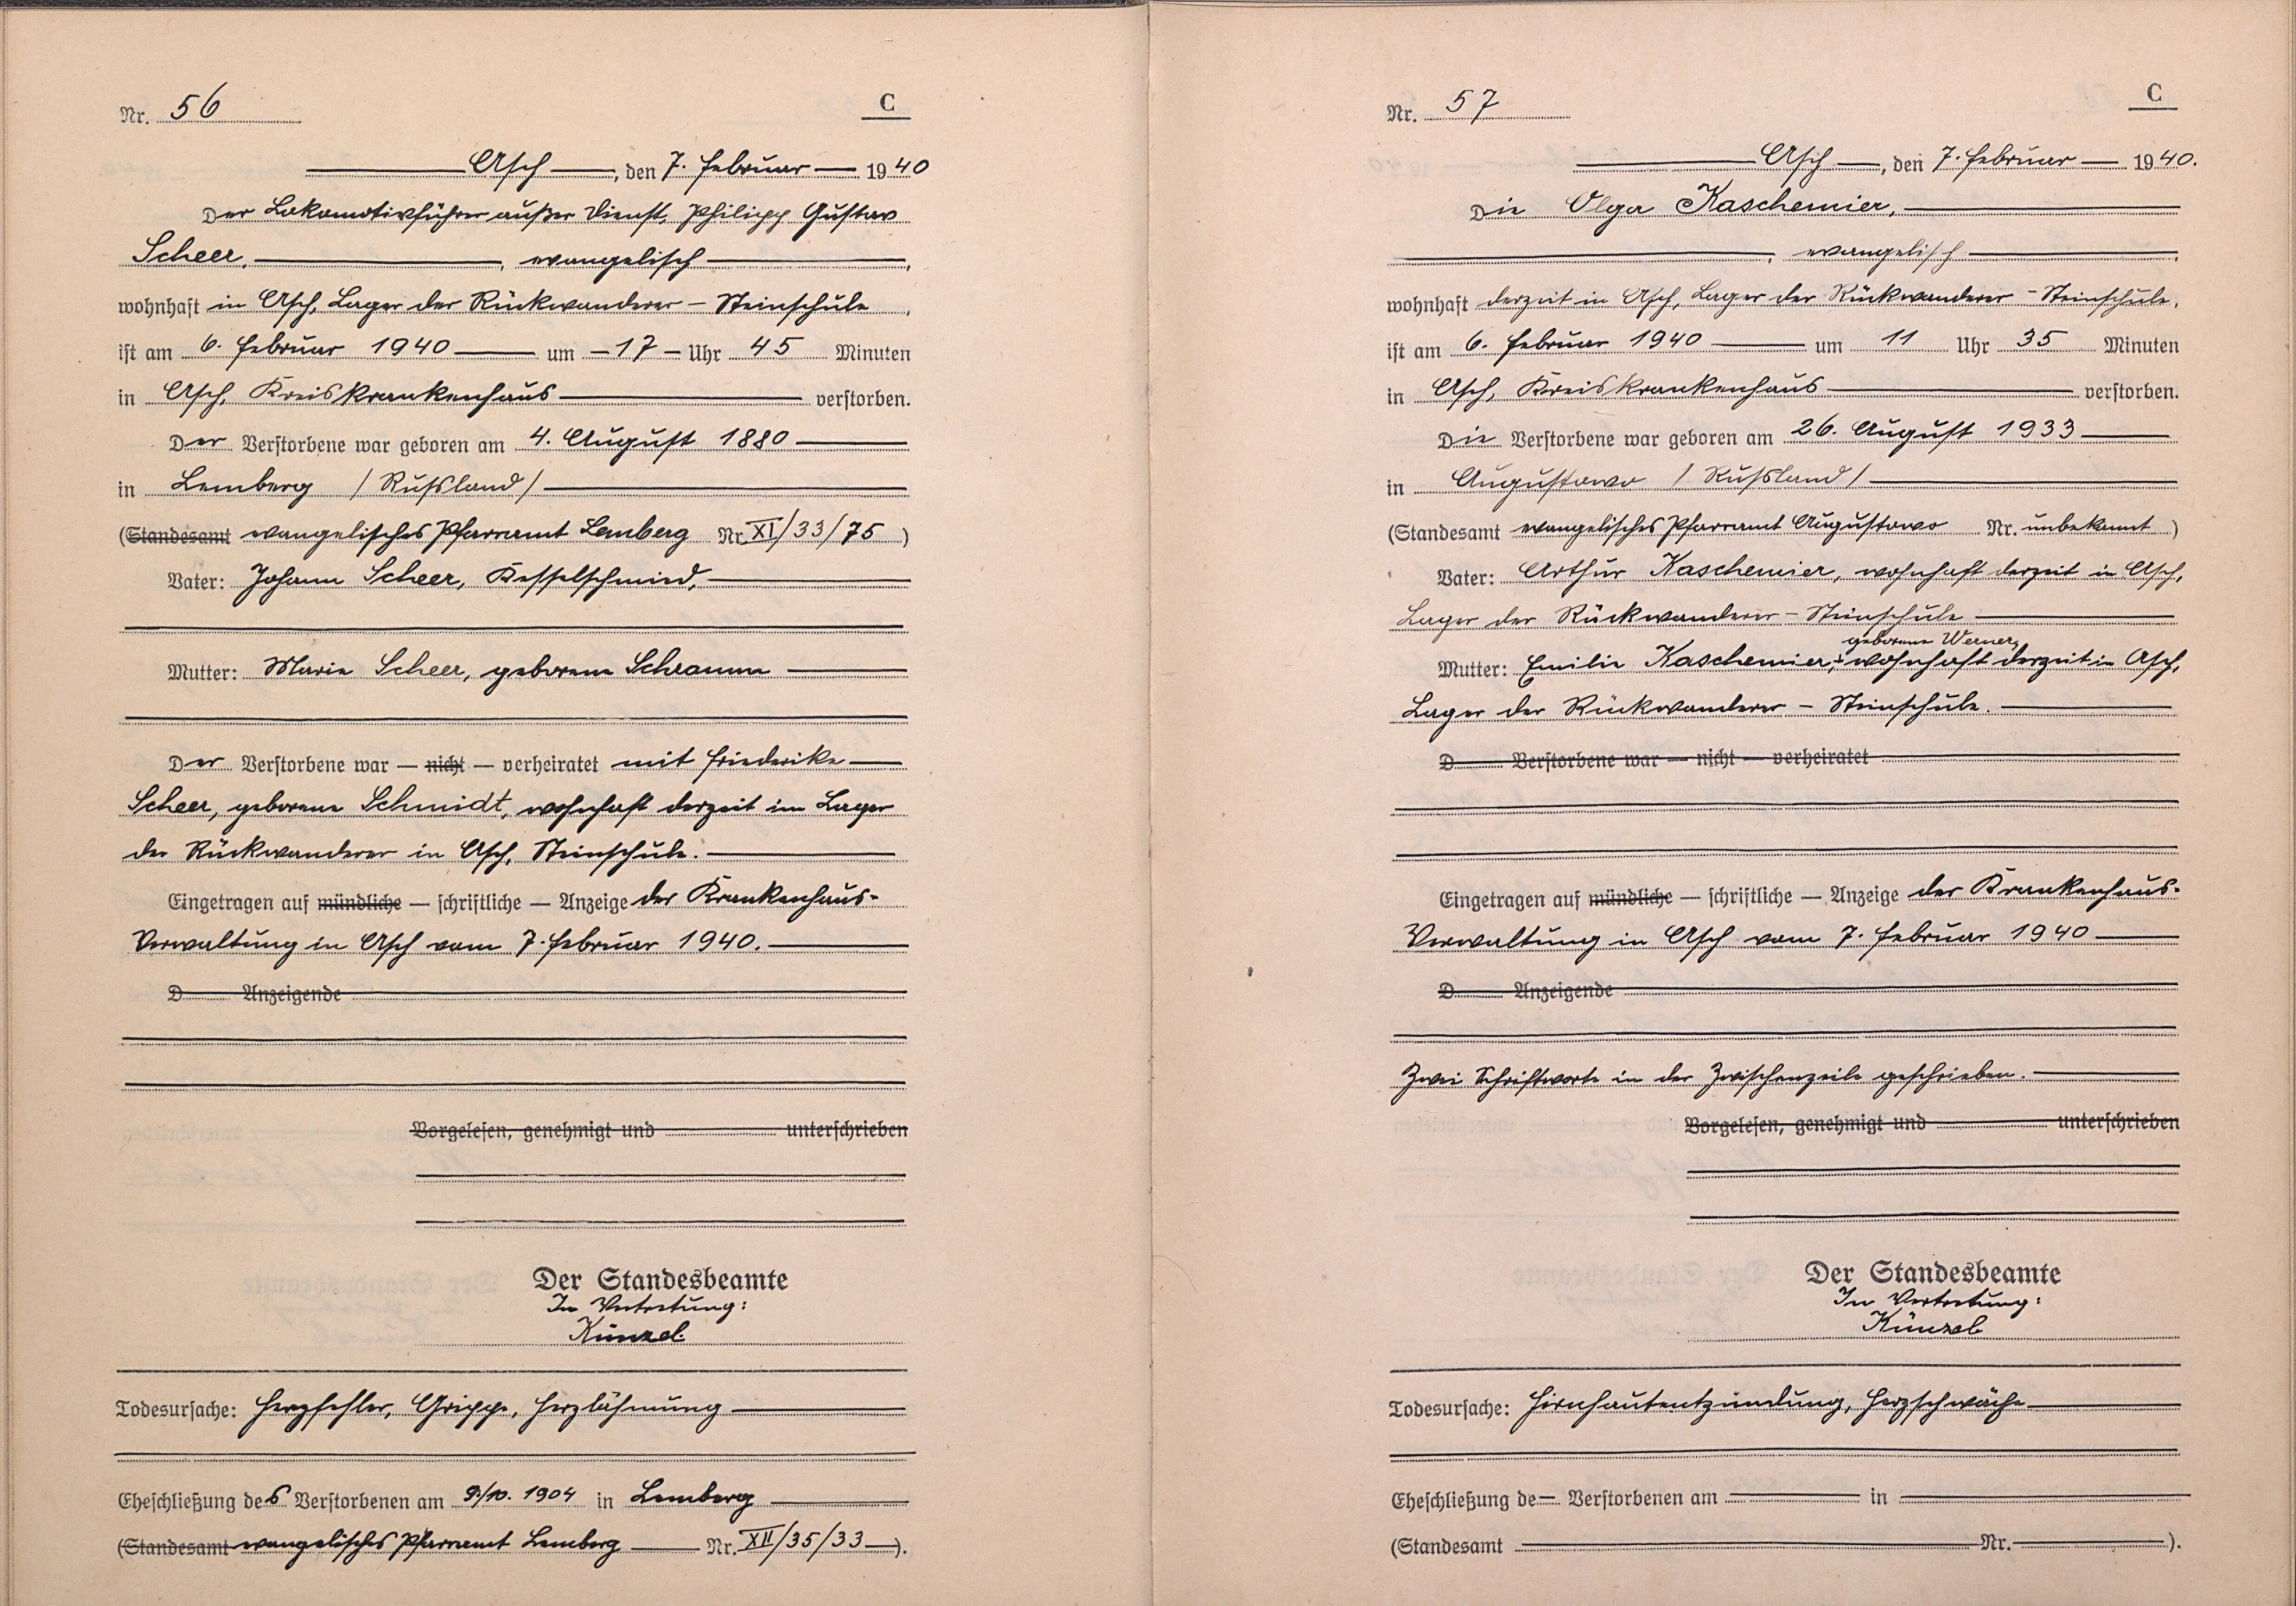 Nr. 56
C
Asch, den 7. Februar 1940
Der Lokomotivführer außer Dienst, Philipp Gustav
Scheer, evangelisch,
wohnhaft in Asch, Lager der Rückwanderer - Steinschule,
ist am 6. Februar 1940 um - 17 - Uhr 45 Minuten
in Asch, Kreiskrankenhaus verstorben.
Der Verstorbene war geboren am 4. August 1880
in Lemberg /Rußland/
(Standesamt evangelisches Pfarramt Lemberg Nr. XI/33/75)
Vater: Johann Scheer, Kesselschmied,
Mutter: Marie Scheer, geborene Schramm
Der Verstorbene war — nicht — verheiratet mit Friederike
Scheer, geborene Schmidt, wohnhaft derzeit im Lager
der Rückwanderer in Asch, Steinschule.
Eingetragen auf mündliche — schriftliche — Anzeige der Krankenhaus-
Verwaltung in Asch vom 7. Februar 1940.
D Anzeigende
Vorgelesen, genehmigt und unterschrieben
Der Standesbeamte
In Vertretung:
Künzel
Todesursache: Herzfehler, Grippe, Herzlähmung
Eheschließung des Verstorbenen am 9./10. 1904 in Lemberg
(Standesamt evangelisches Pfarramt Lemberg Nr. XII/35/33).
Nr. 57
C
Asch, den 7. Februar 1940.
Die Olga Kaschemier,
, evangelisch,
wohnhaft derzeit in Asch, Lager der Rückwanderer - Steinschule,
ist am 6. Februar 1940 um 11 Uhr 35 Minuten
in Asch, Kreiskrankenhaus verstorben.
Die Verstorbene war geboren am 26. August 1933
in Augustowo /Rußland/
(Standesamt evangelisches Pfarramt Augustowo Nr. unbekannt)
Vater: Arthur Kaschemier, wohnhaft derzeit in Asch,
Lager der Rückwanderer - Steinschule
geborene Werner,
Mutter: Emilie Kaschemier, wohnhaft derzeit in Asch,
Lager der Rückwanderer - Steinschule.
D Verstorbene war — nicht — verheiratet
Eingetragen auf mündliche — schriftliche — Anzeige der Krankenhaus-
Verwaltung in Asch vom 7. Februar 1940
D Anzeigende
Zwei Schriftworte in der Zwischenzeile geschrieben.
Vorgelesen, genehmigt und unterschrieben
Der Standesbeamte
In Vertretung:
Künzel
Todesursache: Hirnhautentzündung, Herzschwäche
Eheschließung de— Verstorbenen am in
(Standesamt Nr. ).